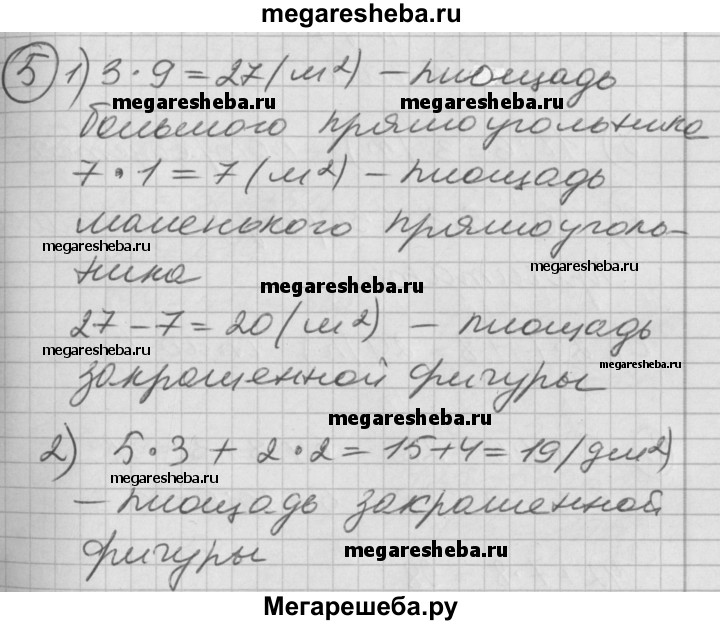 megaresheba.ru
5 1) 3 · 9 = 27 (м²) – площадь
megaresheba.ru megaresheba.ru
большого прямоугольника
7 · 1 = 7 (м²) – площадь
маленького прямоуголь-
megaresheba.ru megaresheba.ru
ника
megaresheba.ru
27 – 7 = 20 (м²) – площадь
megaresheba.ru megaresheba.ru
закрашенной фигуры
megaresheba.ru
2) 5 · 3 + 2 · 2 = 15 + 4 = 19 (дм²)
megaresheba.ru
– площадь закрашенной
фигуры
megaresheba.ru
Мегарешеба.ру